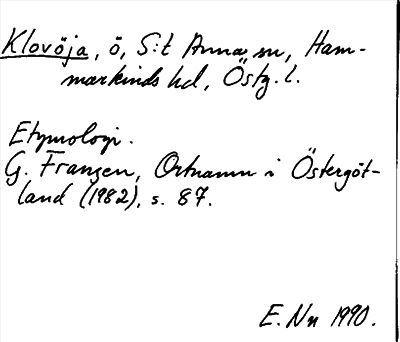 Klovöja, ö, S:t Anna sn, Ham-
markinds hd, Östg. l.
Etymologi.
G. Franzén, Ortnamn i Östergöt-
land (1982), s. 87.
E. Nn 1990.